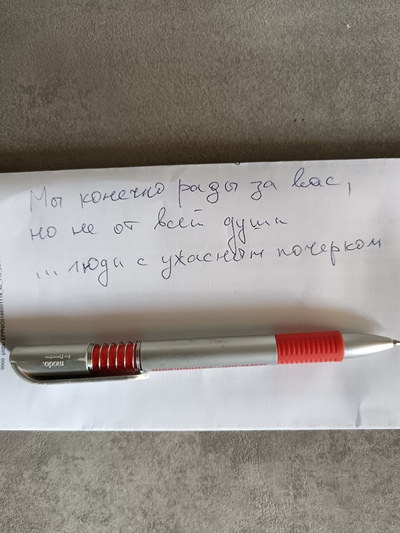 Мы конечно рады за вас,
но не от всей души
... люди с ужасным почерком
moda.